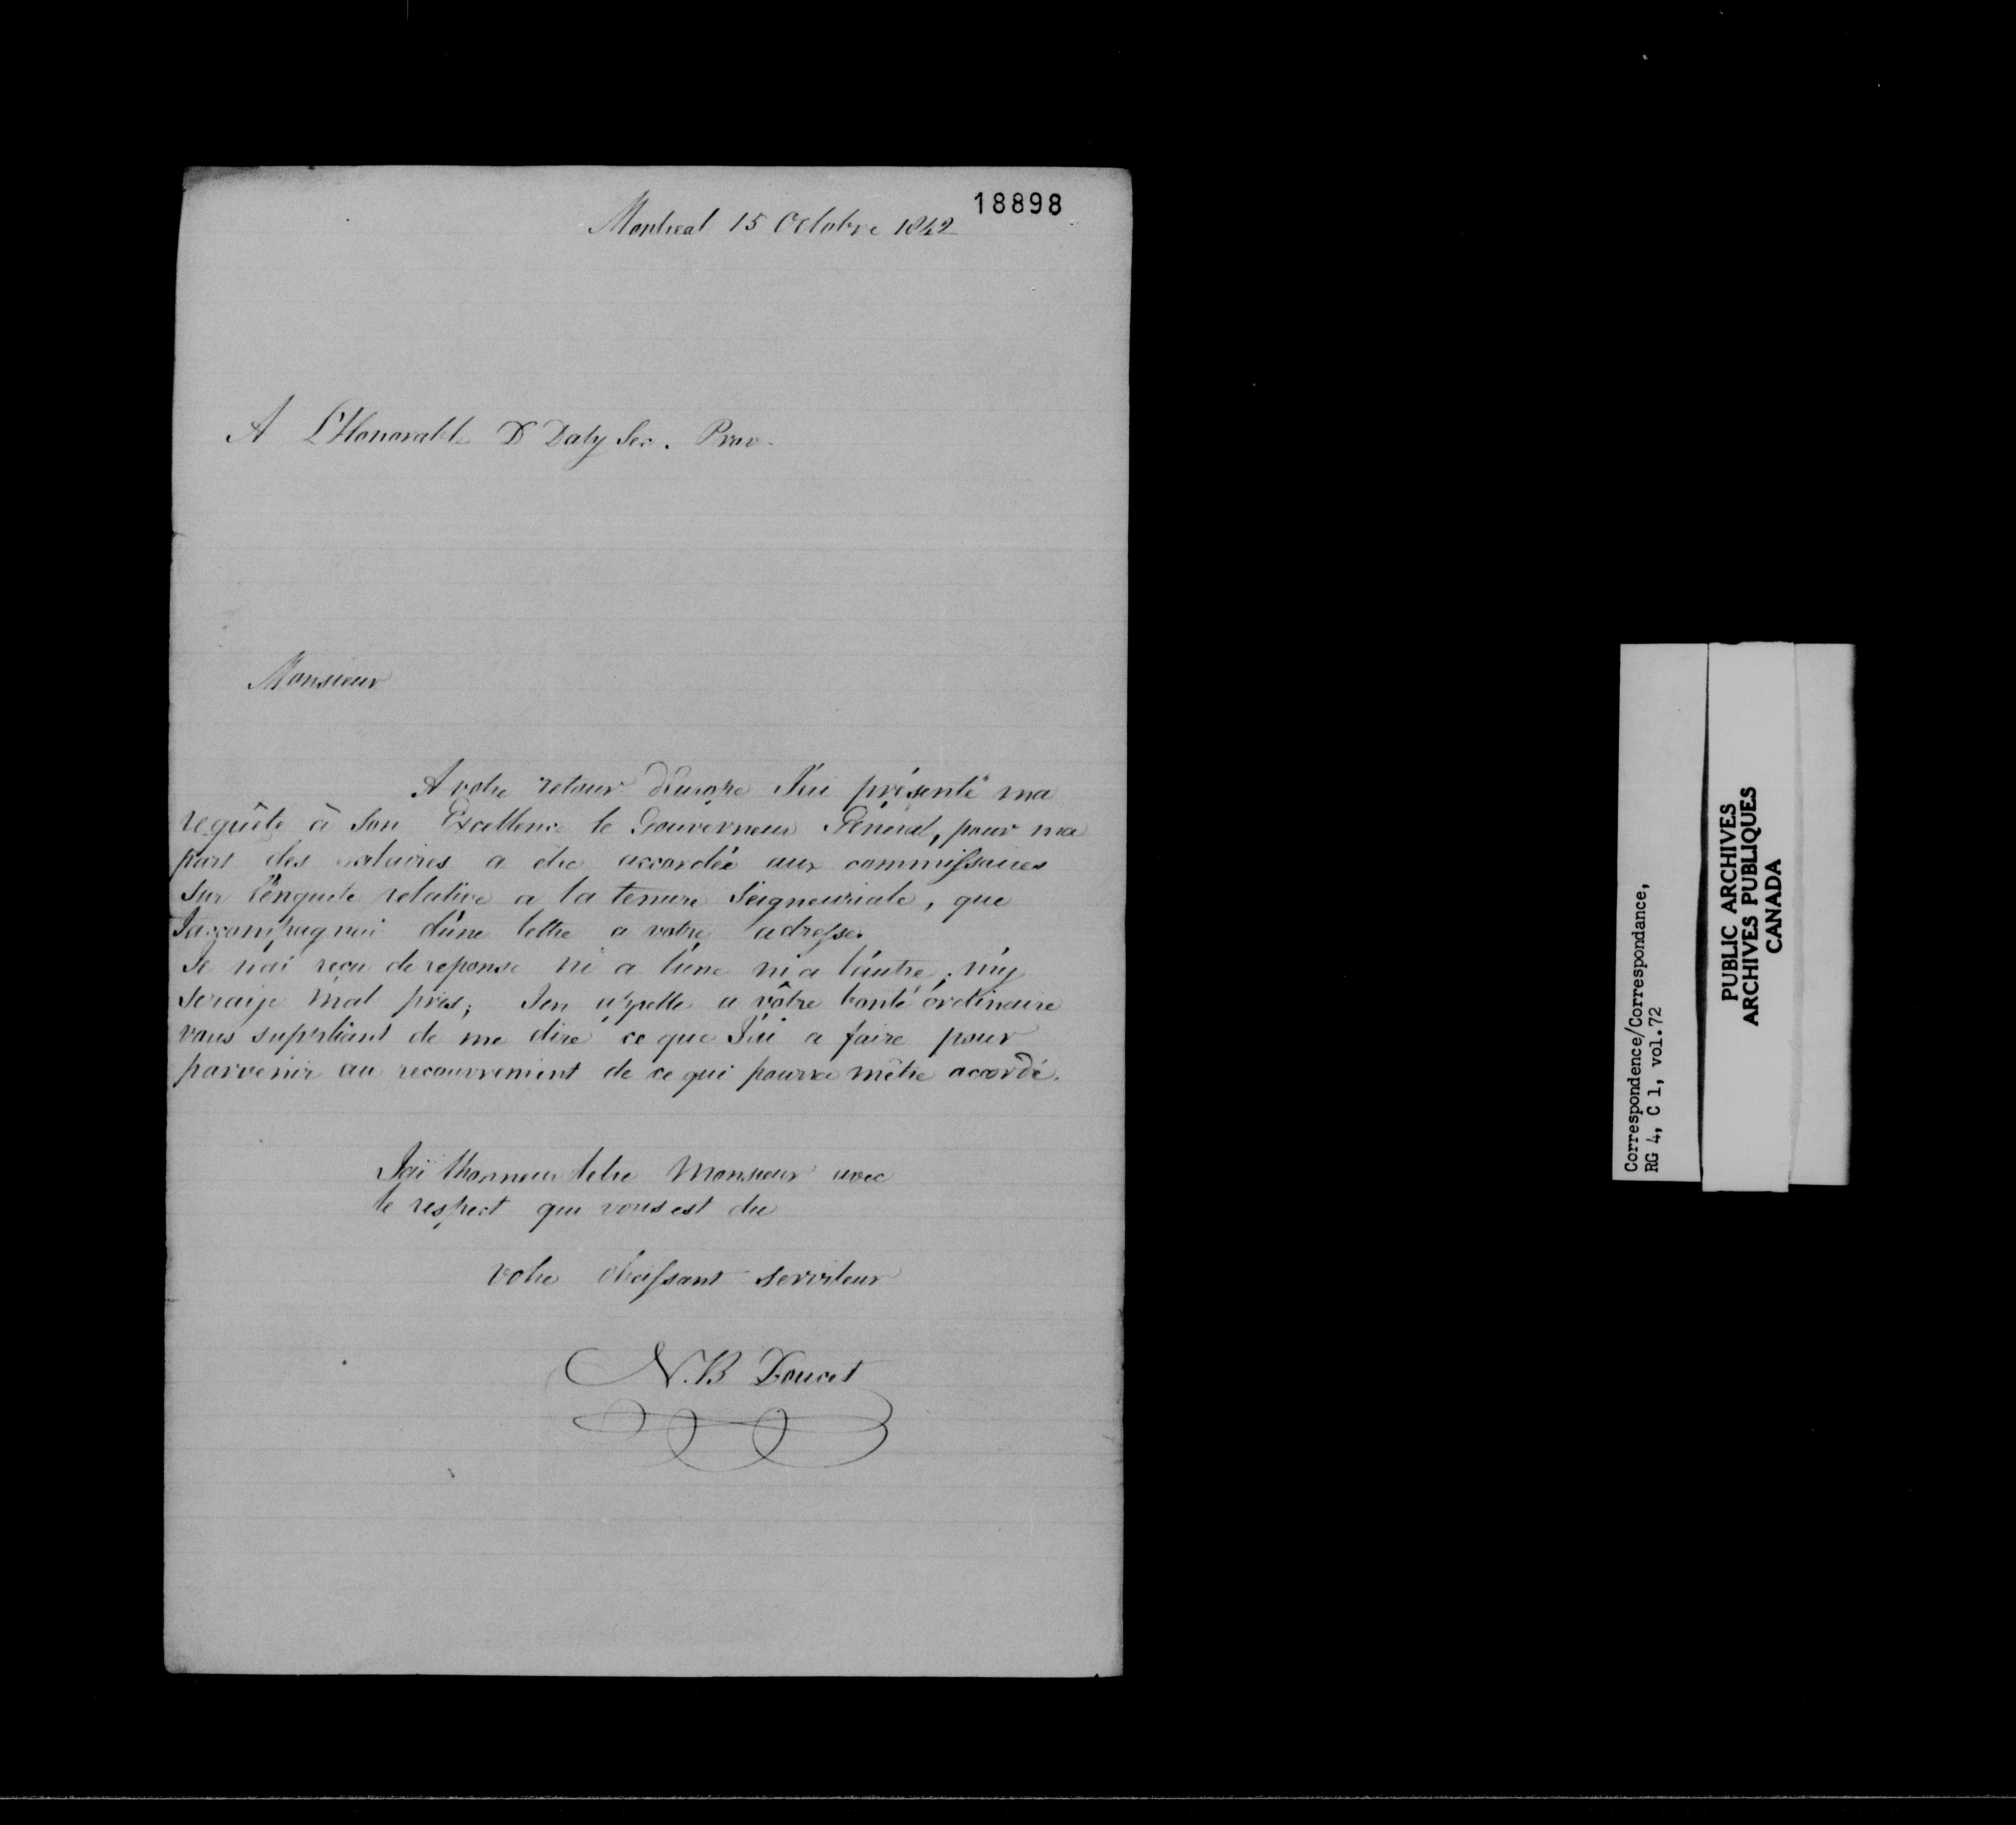 18898
Montreal 15 Octobre 1842
A L'Honorable D Daly Sec. Prov.
Monsieur
A votre retour d'Europe J'ai présenté ma
requête à Son Excellence le Gouverneur Général, pour ma
part des salaires a etre accordée aux commissaires
sur l'enquete relative a la tenure Seigneuriale, que
J'accompagnai d'une lettre a votre adresse.
Je n'ai reçu de reponse ni a l'une ni a l'autre; m'y
seraije mal pris; J'en appelle a vôtre bonté ordinaire
vous suppliant de me dire ce que J'ai a faire pour
parvenir au recouvrement de ce qui pourra mêtre accordé.
J'ai l'honneur detre Monsieur avec
le respect qui vous est du
votre obeissant serviteur
N.B Doucet
Correspondence/Correspondance,
RG 4, C 1, vol.72
PUBLIC ARCHIVES
ARCHIVES PUBLIQUES
CANADA